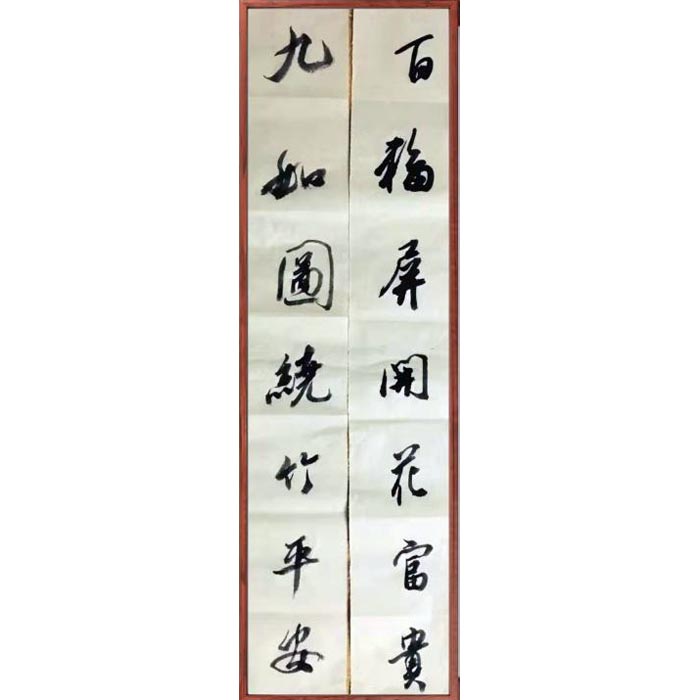 百輪屏開花富貴
九如圖繞竹平安